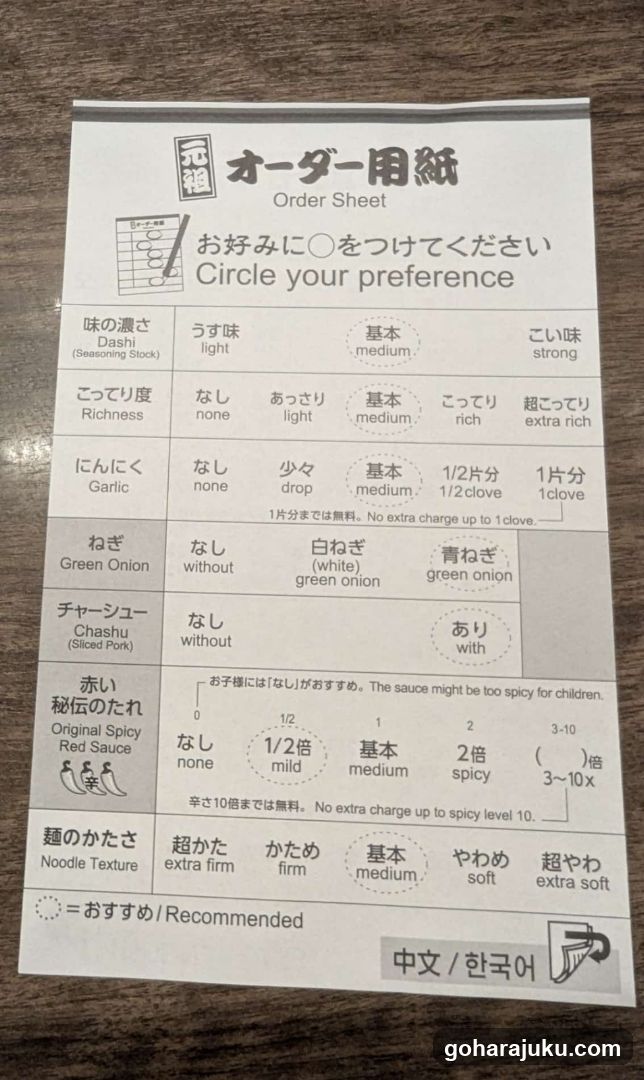 元祖 オーダー用紙
Order Sheet
オーダー用紙
お好みに○をつけてください
Circle your preference
味の濃さ うす味 基本 こい味
Dashi light medium strong
(Seasoning Stock)
こってり度 なし あっさり 基本 こってり 超こってり
Richness none light medium rich extra rich
にんにく なし 少々 基本 1/2片分 1片分
Garlic none drop medium 1/2clove 1clove
1片分までは無料。No extra charge up to 1clove.
ねぎ なし 白ねぎ 青ねぎ
Green Onion without (white) green onion
green onion
チャーシュー なし あり
Chashu without with
(Sliced Pork)
お子様には「なし」がおすすめ。The sauce might be too spicy for children.
赤い
秘伝のたれ
Original Spicy
Red Sauce
辛
0 1/2 1 2 3-10
なし 1/2倍 基本 2倍 ( )倍
none mild medium spicy 3～10x
辛さ10倍までは無料。No extra charge up to spicy level 10.
麺のかたさ 超かた かため 基本 やわめ 超やわ
Noodle Texture extra firm firm medium soft extra soft
=おすすめ/Recommended
中文 / 한국어
goharajuku.com